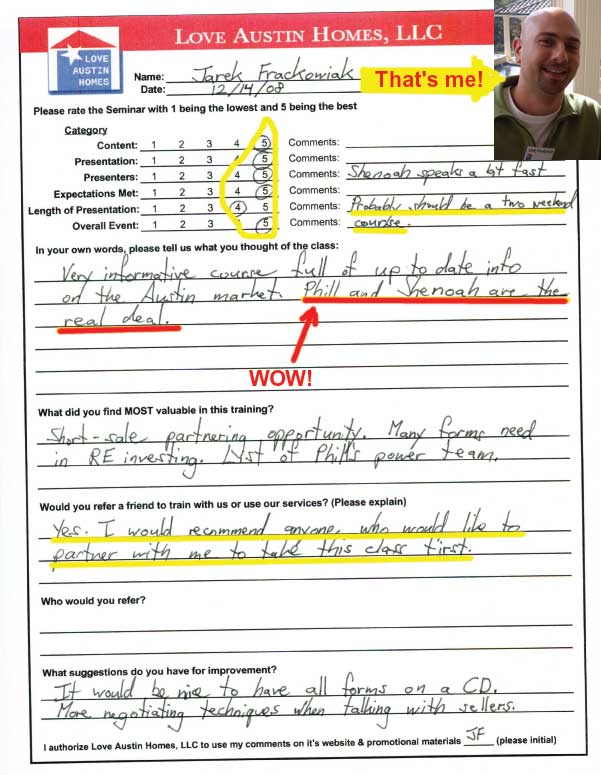 LOVE AUSTIN HOMES, LLC
LOVE
AUSTIN
HOMES
Name: Jarek Frackowiak
That's me!
Date: 12/14/08
Please rate the Seminar with 1 being the lowest and 5 being the best
Category
Content: 1 2 3 4 5 Comments:
Presentation: 1 2 3 4 5 Comments:
Presenters: 1 2 3 4 5 Comments: Shenoah speaks a bit fast
Expectations Met: 1 2 3 4 5 Comments:
Length of Presentation: 1 2 3 4 5 Comments: Probably should be a two weekend
Overall Event: 1 2 3 4 5 Comments: course.
In your own words, please tell us what you thought of the class:
Very informative course full of up to date info
on the Austin market. Phill and Shenoah are the
real deal.
WOW!
What did you find MOST valuable in this training?
Short-sale partnering opportunity. Many forms need
in RE investing. Lyst of Phill's power team.
Would you refer a friend to train with us or use our services? (Please explain)
Yes. I would recommend anyone, who would like to
partner with me to take this class first.
Who would you refer?
What suggestions do you have for improvement?
It would be nice to have all forms on a CD.
More negotiating techniques when talking with sellers.
I authorize Love Austin Homes, LLC to use my comments on it's website & promotional materials JF (please initial)